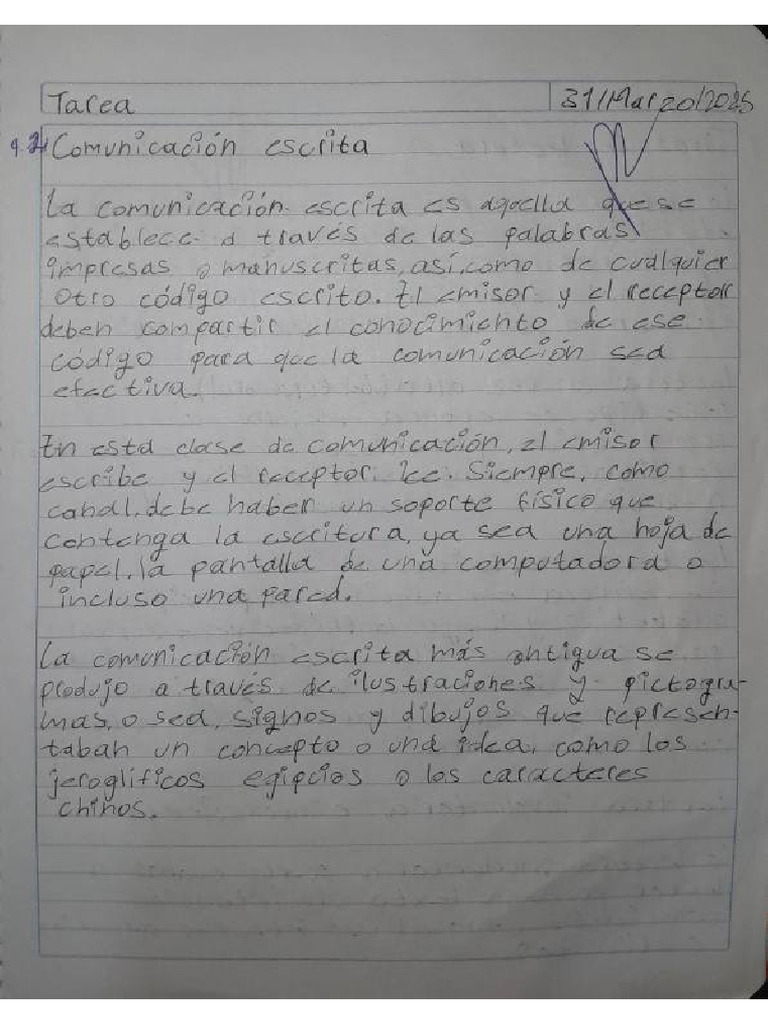 Tarea
31/Marzo/2025
9.2 Comunicación escrita
La comunicación escrita es aquella que se
establece a través de las palabras
impresas o manuscritas, así como de cualquier
otro código escrito. El emisor y el receptor
deben compartir el conocimiento de ese
código para que la comunicación sea
efectiva.
En esta clase de comunicación, el emisor
escribe y el receptor lee. Siempre, como
canal, debe haber un soporte físico que
contenga la escritura, ya sea una hoja de
papel, la pantalla de una computadora o
incluso una pared.
La comunicación escrita más antigua se
produjo a través de ilustraciones y pictogra-
mas, o sea, signos y dibujos que represen-
taban un concepto o una idea, como los
jeroglificos egipcios o los caracteres
chinos.